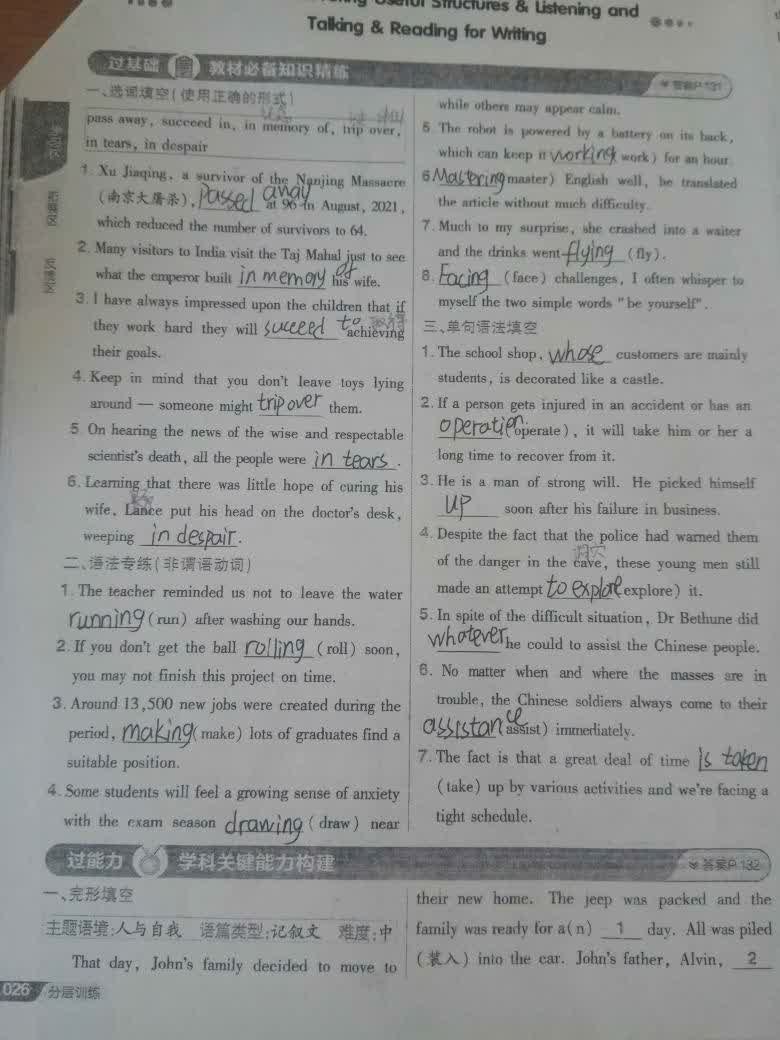 Useful Structures & Listening and
Talking & Reading for Writing
过基础 教材必备知识精练
答案P.131
一、选词填空(使用正确的形式)
pass away, succeed in, in memory of, trip over,
in tears, in despair
1. Xu Jiaqing, a survivor of the Nanjing Massacre
(南京大屠杀), passed away at 96 in August, 2021,
which reduced the number of survivors to 64.
2. Many visitors to India visit the Taj Mahal just to see
what the emperor built in memory of his wife.
3. I have always impressed upon the children that if
they work hard they will succeed to achieving
their goals.
4. Keep in mind that you don't leave toys lying
around — someone might trip over them.
5. On hearing the news of the wise and respectable
scientist's death, all the people were in tears.
6. Learning that there was little hope of curing his
wife, Lance put his head on the doctor's desk,
weeping in despair.
二、语法专练(非谓语动词)
1. The teacher reminded us not to leave the water
running (run) after washing our hands.
2. If you don't get the ball rolling (roll) soon,
you may not finish this project on time.
3. Around 13,500 new jobs were created during the
period, making (make) lots of graduates find a
suitable position.
4. Some students will feel a growing sense of anxiety
with the exam season drawing (draw) near
while others may appear calm.
5. The robot is powered by a battery on its back,
which can keep it working work) for an hour.
6 Mastering master) English well, he translated
the article without much difficulty.
7. Much to my surprise, she crashed into a waiter
and the drinks went flying (fly).
8. Facing (face) challenges, I often whisper to
myself the two simple words "be yourself".
三、单句语法填空
1. The school shop, whose customers are mainly
students, is decorated like a castle.
2. If a person gets injured in an accident or has an
operation operate), it will take him or her a
long time to recover from it.
3. He is a man of strong will. He picked himself
up soon after his failure in business.
4. Despite the fact that the police had warned them
洞穴
of the danger in the cave, these young men still
made an attempt to explore explore) it.
5. In spite of the difficult situation, Dr Bethune did
whatever he could to assist the Chinese people.
6. No matter when and where the masses are in
trouble, the Chinese soldiers always come to their
assistance assist) immediately.
7. The fact is that a great deal of time is taken
(take) up by various activities and we're facing a
tight schedule.
过能力 学科关键能力构建
答案P.132
一、完形填空
主题语境:人与自我 语篇类型:记叙文 难度:中
That day, John's family decided to move to
their new home. The jeep was packed and the
family was ready for a(n) 1 day. All was piled
(装入) into the car. John's father, Alvin, 2
026 分层训练